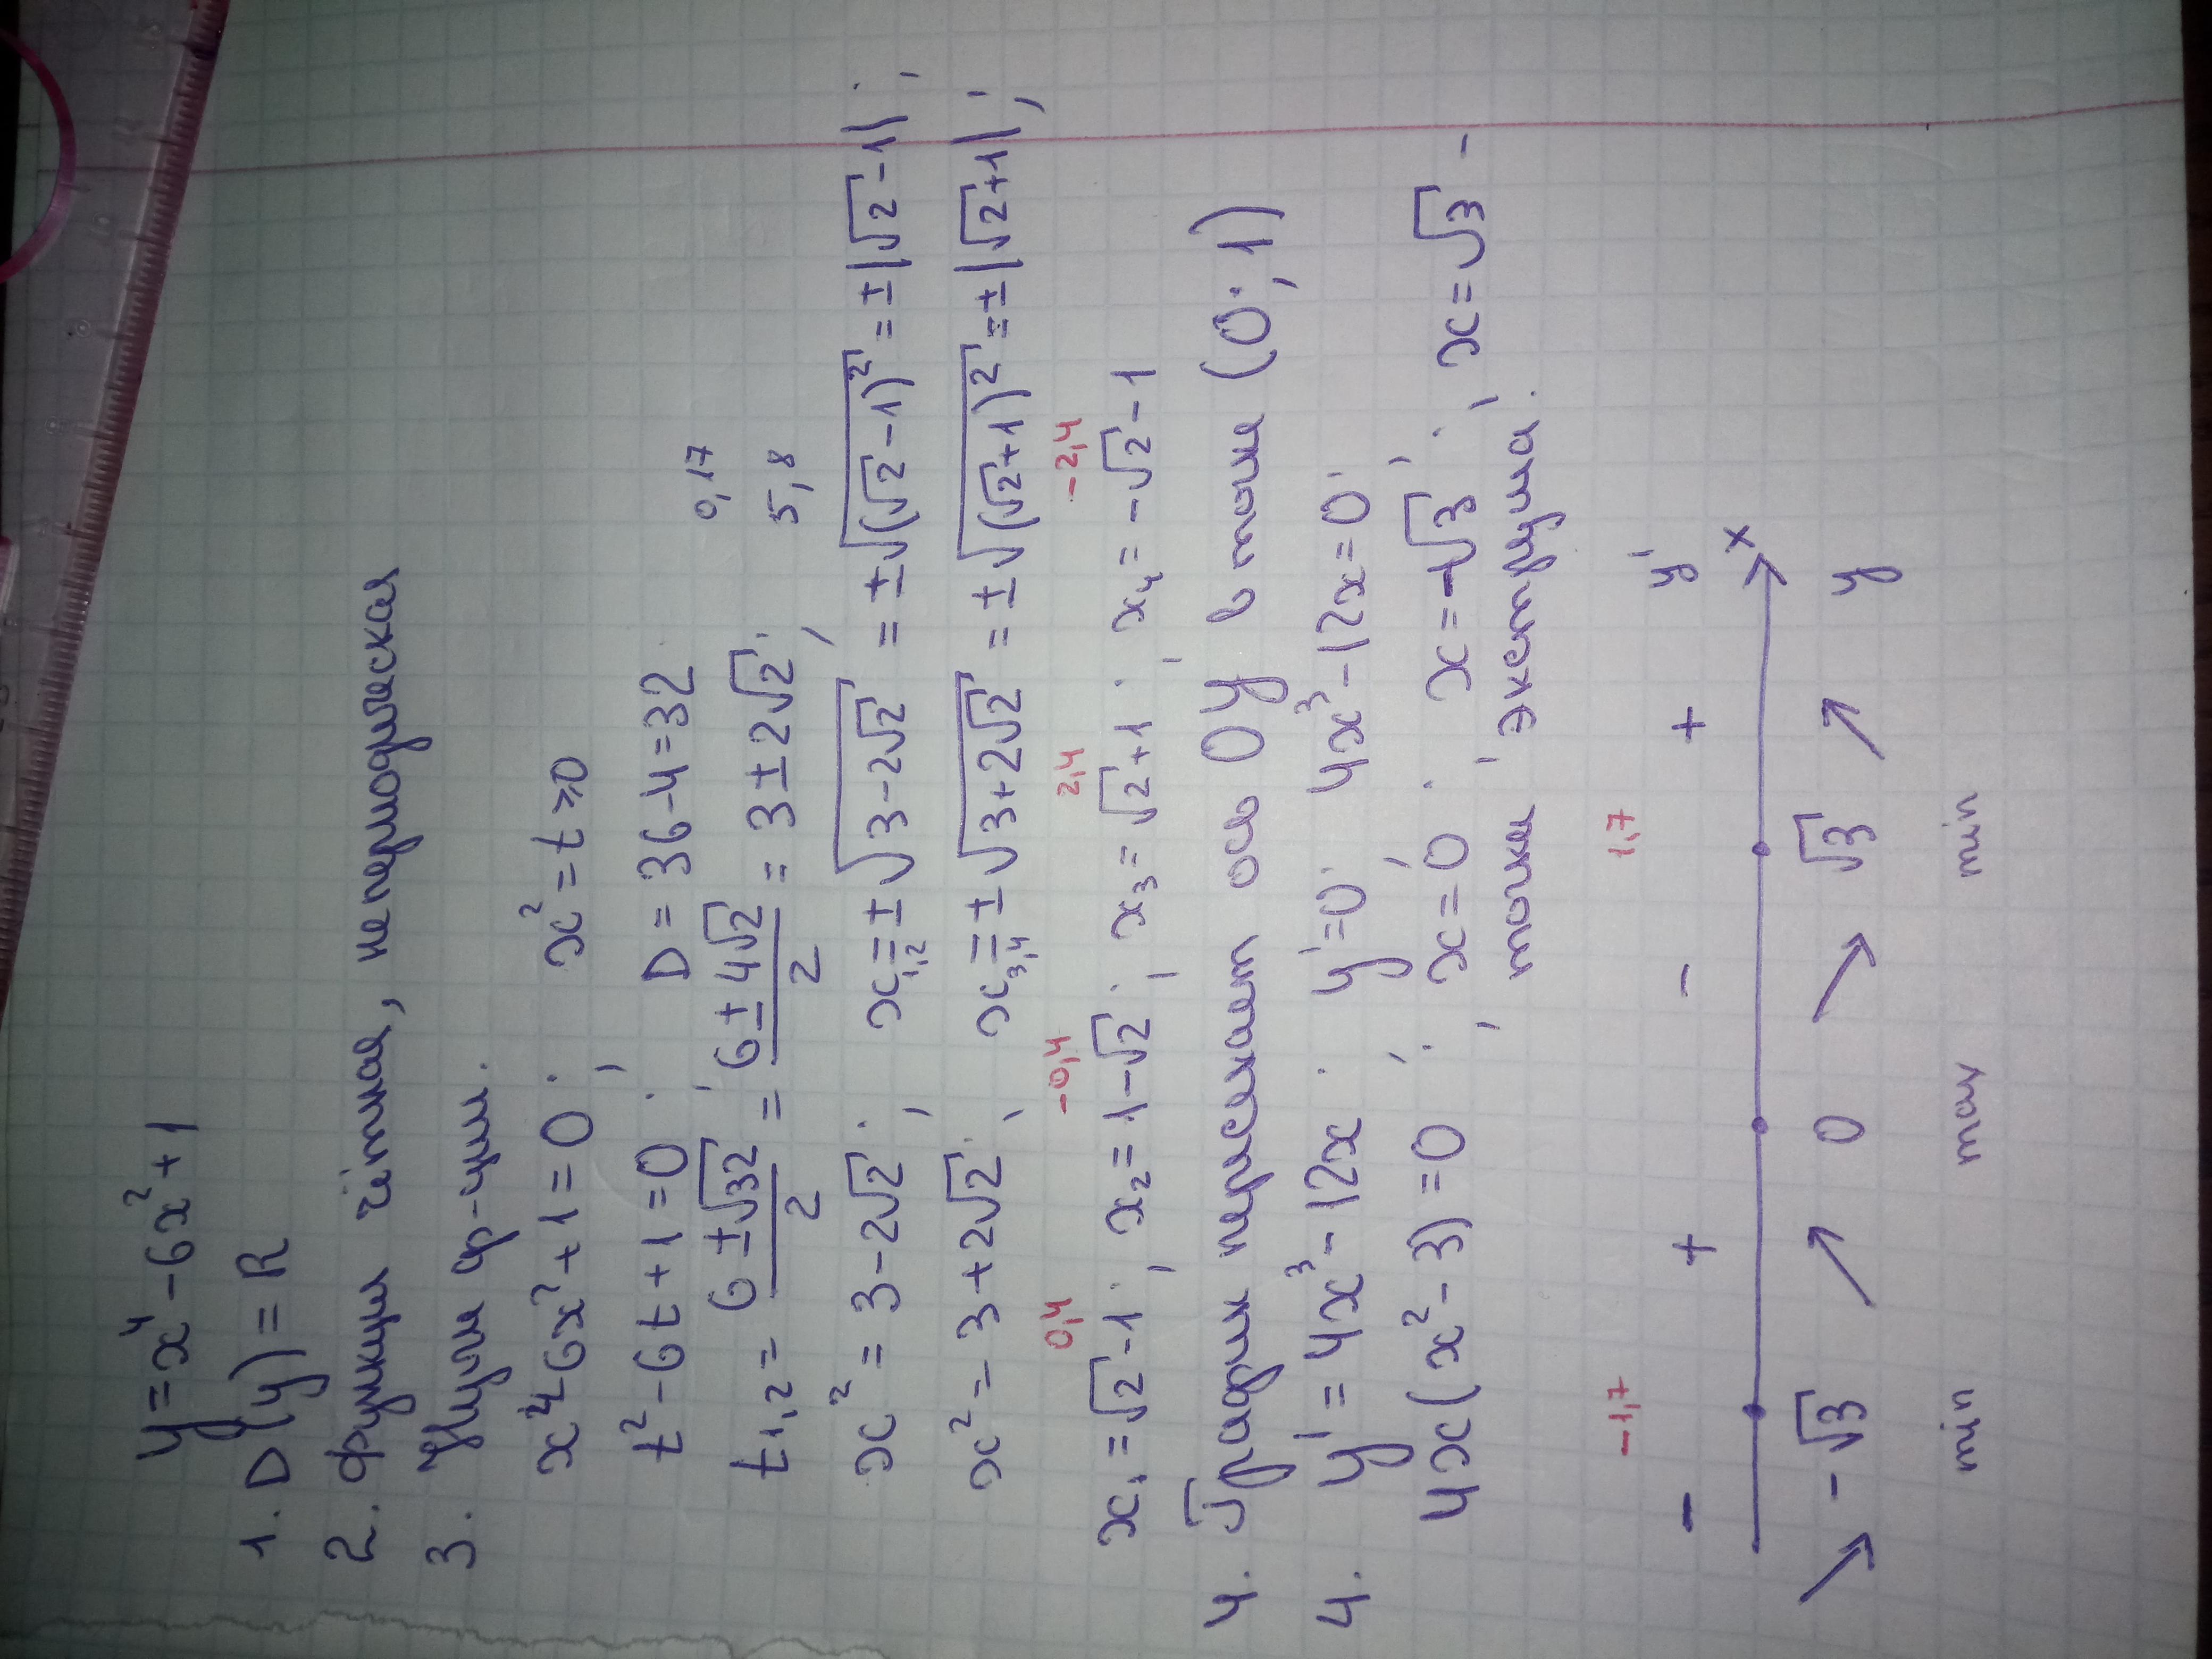 y=x⁴-6x²+1
1. D(y)=R
2. Функция чётная, непериодическая
3. Нули ф-ции.
x⁴-6x²+1=0; x²=t⩾0
t²-6t+1=0; D=36-4=32
t₁,₂=(6±√32)/2=(6±4√2)/2=3±2√2; 0,17 5,8
x²=3-2√2; x₁,₂=±√(3-2√2)=±√((√2-1)²)=±|√2-1|;
x²=3+2√2; x₃,₄=±√(3+2√2)=±√((√2+1)²)=±|√2+1|;
0,4 -0,4 2,4 -2,4
x₁=√2-1; x₂=1-√2; x₃=√2+1; x₄=-√2-1
4. График пересекает ось Oy в точке (0; 1)
4. y'=4x³-12x; y'=0; 4x³-12x=0;
4x(x²-3)=0; x=0; x=-√3; x=√3 -
точки экстремума.
-1,7 1,7
- + - + y'
x
↘ -√3 ↗ 0 ↘ √3 ↗ y
min max min